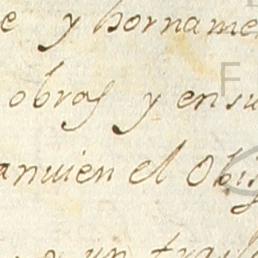 e y hornamen
obras y en su
anvien el Obis
y un trasla